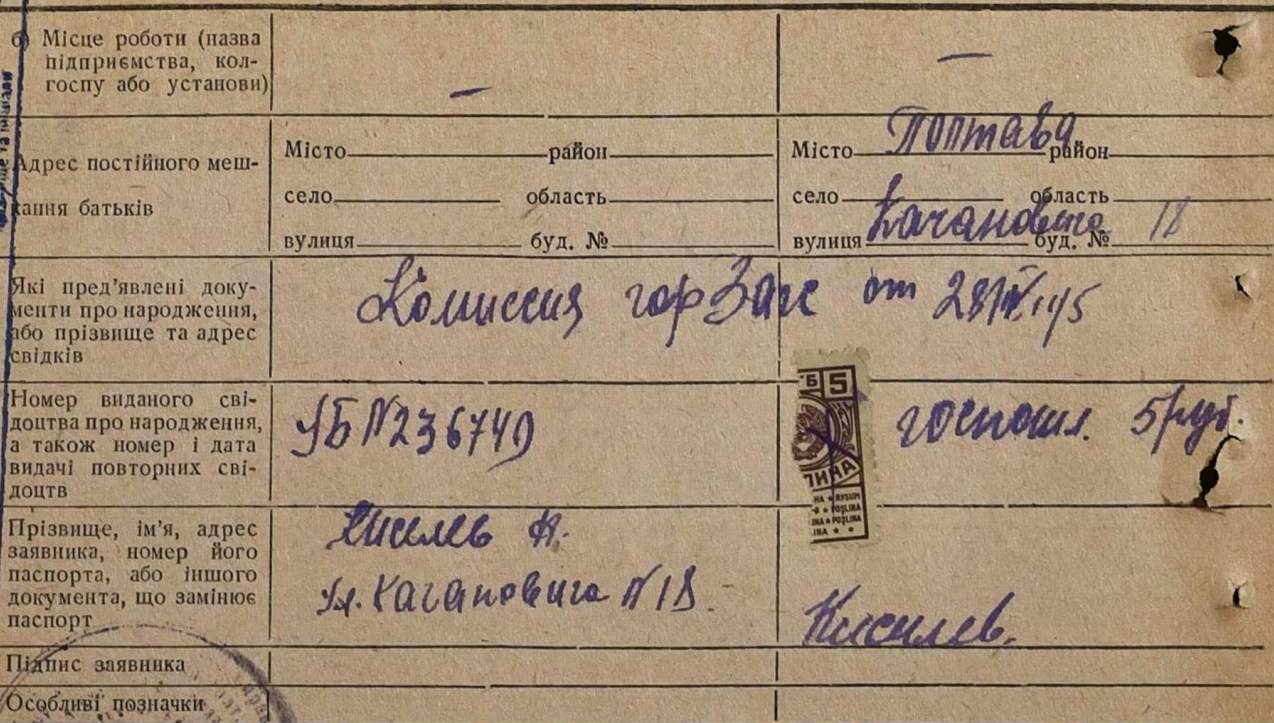 б) Місце роботи (назва
підприємства, кол-
госпу або установи)
— —
Адрес постійного меш-
кання батьків
Місто район
село область
вулиця буд. №
Місто Полтава район
село область
вулиця Кагановича буд. № 18
Які пред'явлені доку-
менти про народження,
або прізвище та адрес
свідків
Комиссия гор Загс от
Номер виданого сві-
доцтва про народження,
а також номер і дата
видачі повторних сві-
доцтв
УБ N236749
5
ЛИНА
RYSUM
POŞLINA
госпошл. 5 руб.
Прізвище, ім'я, адрес
заявника, номер його
паспорта, або іншого
документа, що замінює
паспорт
Киселев А.
ул. Кагановича N 18.
Киселев.
Підпис заявника
Особливі позначки